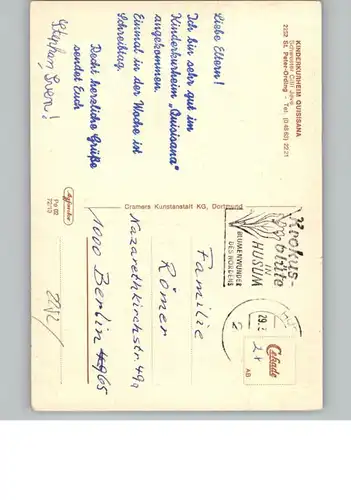 KINDERKURHEIM QUISISANA
2252 St. Peter-Ording - Tel. (0 48 63) 22 21
Liebe Eltern!
Ich bin sehr gut im
Kinderkurheim „Quisisana"
angekommen.
Einmal in der Woche ist
Schreibtag.
Recht herzliche Grüße
sendet Euch
Stephan, Sven!
Cramers Kunstanstalt KG, Dortmund
Krokus-
blüte
IN
HUSUM
BLUMENWUNDER
DES NORDENS
29.
2
Familie
Römer
Nazarethkirchstr. 49a
1000 Berlin 65
Cekade
24
AB